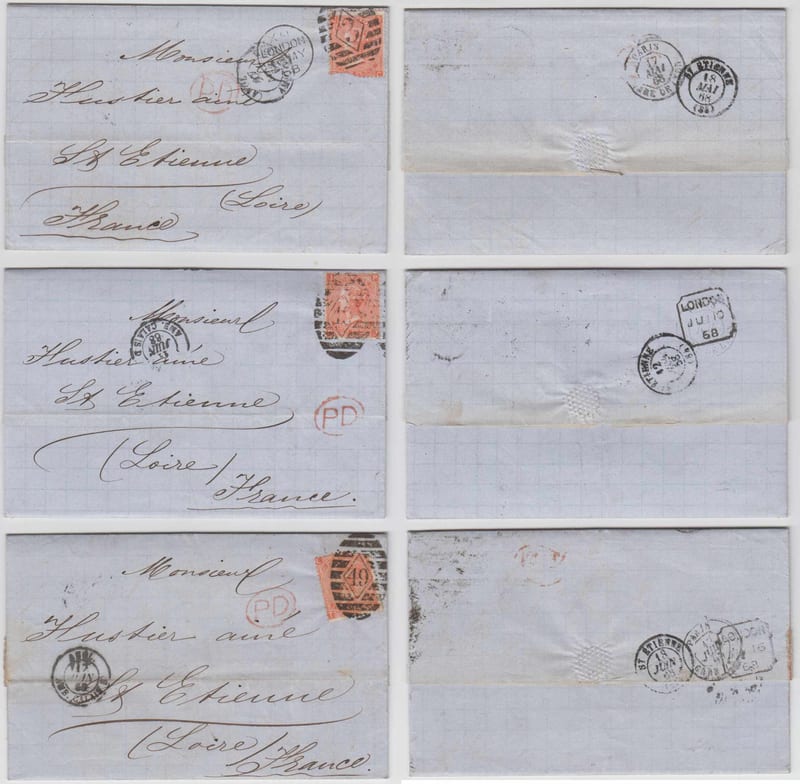 Monsieur
Hustier ainé
St Etienne
(Loire)
France
PD
LONDON
MY
68
73
PARIS
17
MAI
68
GARE DU
ST ETIENNE
18
MAI
68
(84)
Monsieur
Hustier ainé
St Etienne
(Loire)
France.
PD
AMB. CALAIS
JUIN
68
LONDON
JU 10
68
ETIENNE
12
Monsieur
Hustier ainé
St Etienne
(Loire)
France.
PD
49
ST ETIENNE
18
JUIN
68
PARIS
16
68